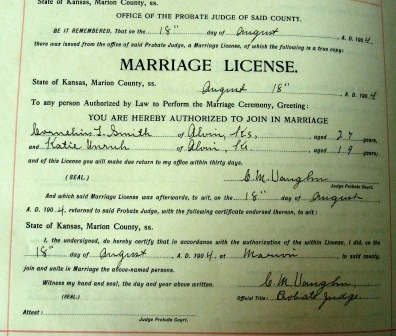 State of Kansas, Marion County, ss.
OFFICE OF THE PROBATE JUDGE OF SAID COUNTY.
BE IT REMEMBERED, That on the 18" day of August A. D. 1904.
there was issued from the office of said Probate Judge, a Marriage License, of which the following is a true copy:
MARRIAGE LICENSE.
State of Kansas, Marion County, ss. August 18" A. D. 1904
To any person Authorized by Law to Perform the Marriage Ceremony, Greeting:
YOU ARE HEREBY AUTHORIZED TO JOIN IN MARRIAGE
Cornelius L. Smith of Alvin, Ks, aged 27 years,
and Katie Unruh of Alvin, Ks aged 19 years,
and of this License you will make due return to my office within thirty days.
(SEAL) C. M. Vaughn
Judge Probate Court.
And which said Marriage License was afterwards, to wit, on the 18" day of August
A. D. 1904, returned to said Probate Judge, with the following certificate endorsed thereon, to wit:
State of Kansas, Marion County, ss.
I, the undersigned, do hereby certify that in accordance with the authorization of the within License, I did, on the
18" day of August A. D. 1904, at Marion in said county,
join and unite in Marriage the above-named persons.
Witness my hand and seal, the day and year above written. C. M. Vaughn,
(SEAL) Official Title: Probate Judge
Attest:
Judge Probate Court.